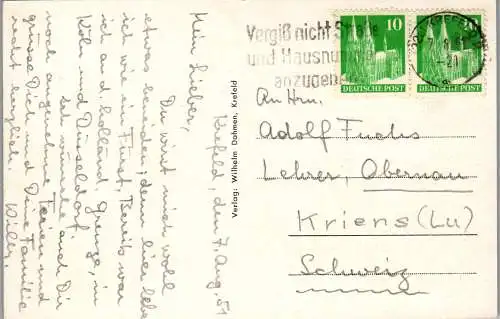 Krefeld, den 7. Aug. 51
Mein Lieber,
Du wirst mich wohl
etwas beneiden; denn hier lebe
ich wie ein Fürst. Bereits war
ich and holländ Grenze, in
Köln und Düsseldorf.
Ich wünsche auch Dir
noch angenehme Ferien und
grüsse Dich und Deine Familie
recht herzlich. Willy.
Verlag: Wilhelm Dahmen, Krefeld
Vergiß nicht Straße
und Hausnummer
anzugeben
KREFELD
10
DEUTSCHE POST
DEUTSCHE POST
An Hrn.
Adolf Fuchs
Lehrer, Obernau
Kriens (Lu)
Schweiz